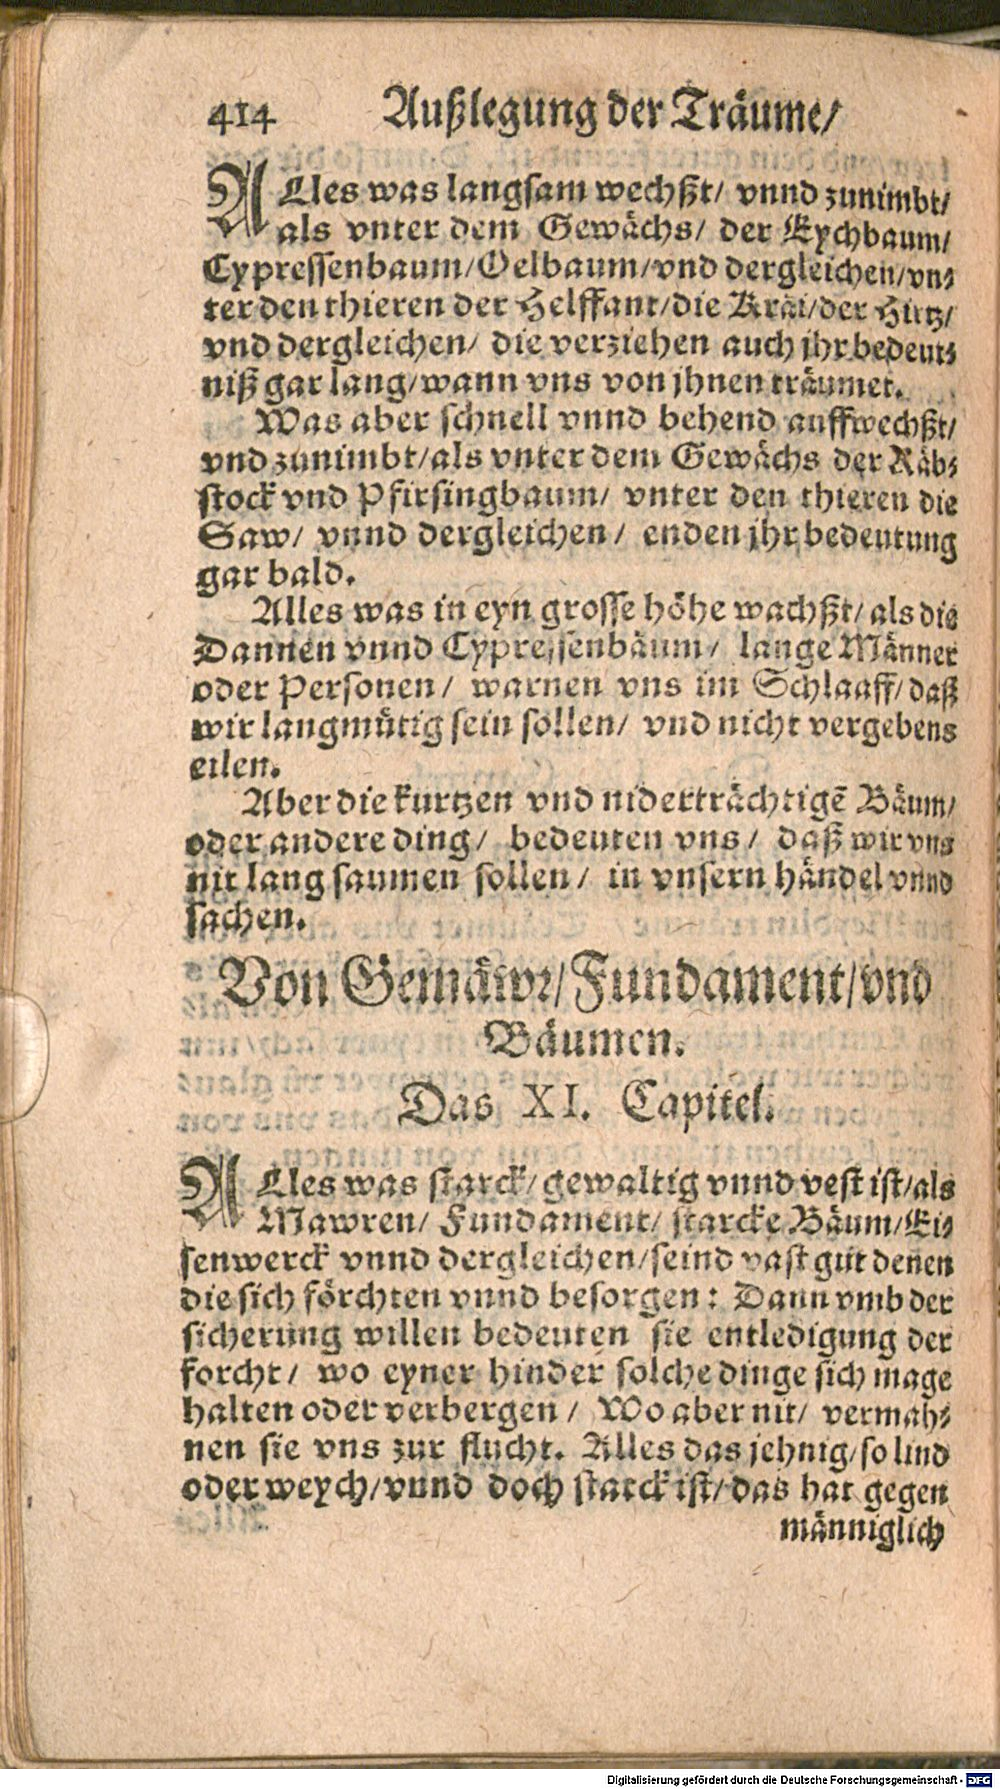 414 Außlegung der Träume/
ALles was langsam wechßt/ vnnd zunimbt/
als vnter dem Gewächs/ der Eychbaum/
Cypressenbaum/Oelbaum/vnd dergleichen/vn⸗
ter den thieren der Helffant/die Kräi/der Hirtz/
vnd dergleichen/ die verziehen auch jhr bedeut⸗
niß gar lang/wann vns von jhnen träumet.
Was aber schnell vnnd behend auffwechßt/
vnd zunimbt/als vnter dem Gewächs der Räb⸗
stock vnd Pfirsingbaum/ vnter den thieren die
Saw/ vnnd dergleichen/ enden jhr bedeutung
gar bald.
Alles was in eyn grosse höhe wachßt/als die
Dannen vnnd Cypressenbäum/ lange Männer
oder Personen/ warnen vns im Schlaaff/daß
wir langmütig sein sollen/ vnd nicht vergebens
eilen.
Aber die kurtzen vnd niderträchtigē Bäum/
oder andere ding/ bedeuten vns/ daß wir vns
nit lang saumen sollen/ in vnsern händel vnnd
sachen.
Von Gemäwr/Fundament/vnd
Bäumen.
Das XI. Capitel.
ALles was starck/gewaltig vnnd vest ist/als
Mawren/ Fundament/ starcke Bäum/Ei⸗
senwerck vnnd dergleichen/seind vast gut denen
die sich förchten vnnd besorgen: Dann vmb der
sicherung willen bedeuten sie entledigung der
forcht/ wo eyner hinder solche dinge sich mage
halten oder verbergen/ Wo aber nit/ vermah⸗
nen sie vns zur flucht. Alles das jehnig/so lind
oder weych/vnnd doch starck ist/das hat gegen
männiglich
Digitalisierung gefördert durch die Deutsche Forschungsgemeinschaft - DFG